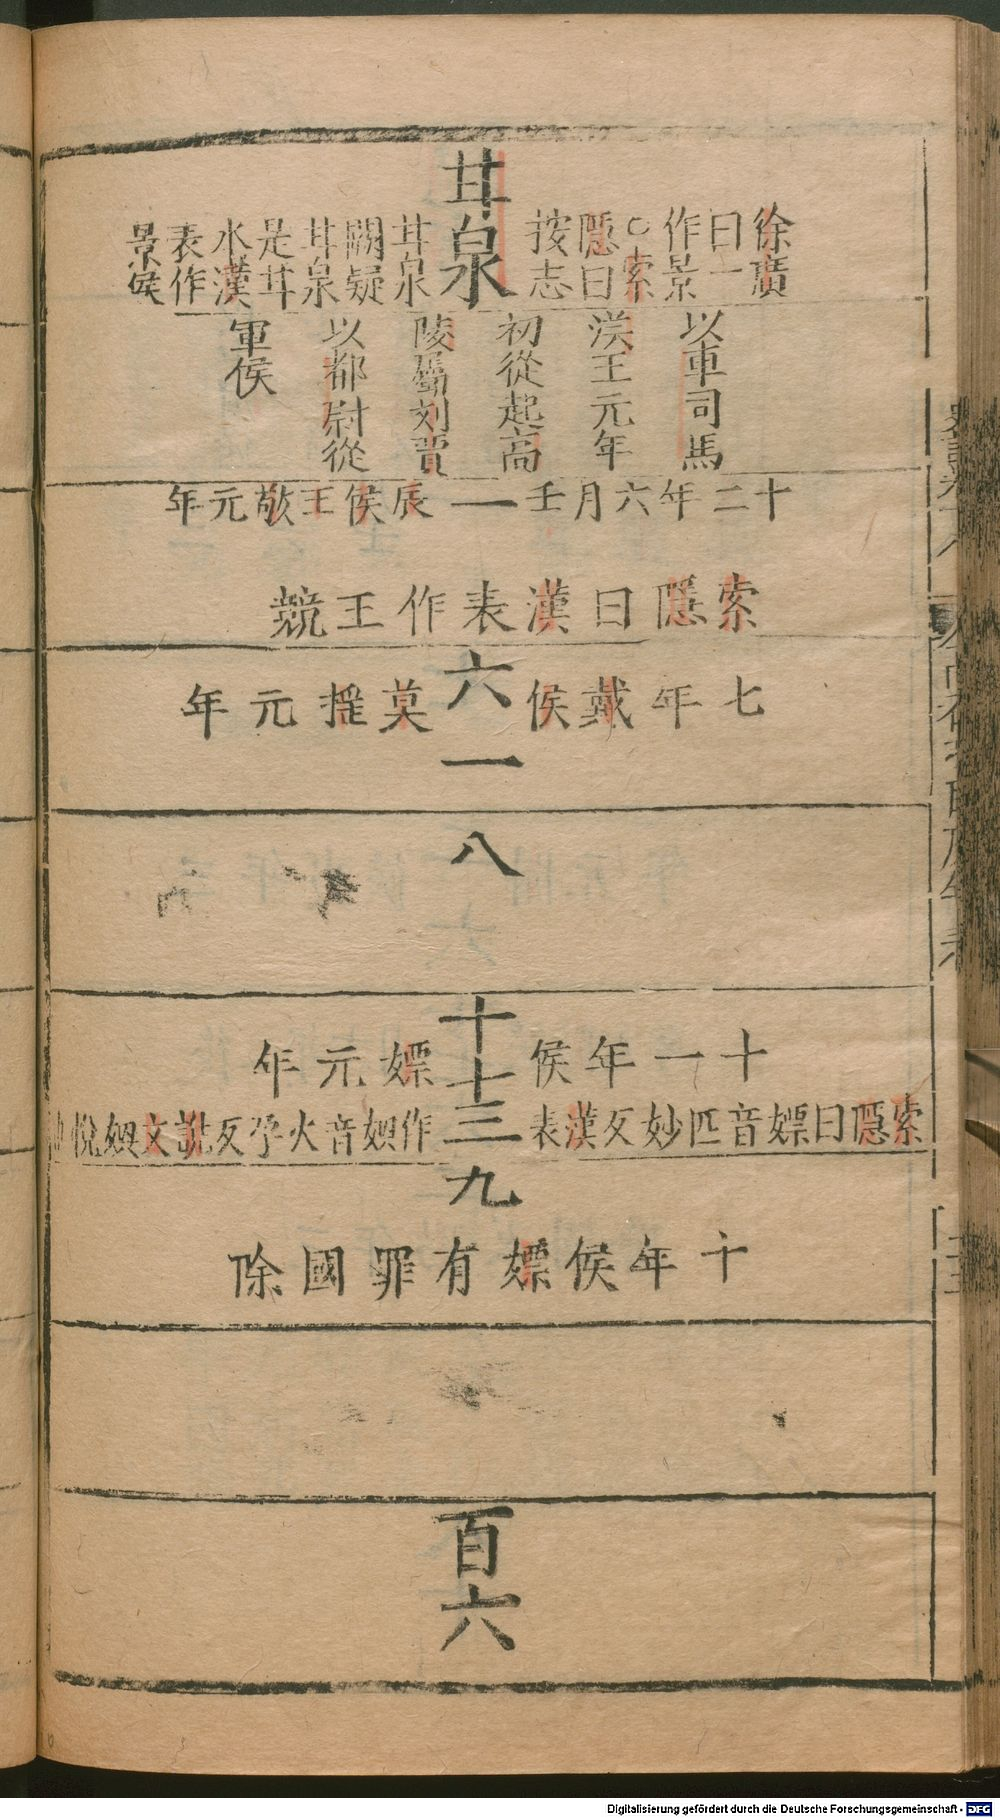 甘泉
徐廣
曰一
作景
○索
隱曰
按志
甘泉
闕疑
甘泉
是甘
水漢
表作
景侯
以車司馬
漢王元年
初從起高
陵屬刘賈
以都尉從
軍侯
一
十二年六月壬辰侯王敬元年
索隱曰漢表作王競
六
七年戴侯莫搖元年
一
八
十
十一年侯嫖元年
十三
索隱曰嫖音匹妙反漢表作音火孕反說文悅
九
十年侯嫖有罪國除
百六
Digitalisierung gefördert durch die Deutsche Forschungsgemeinschaft - DFG